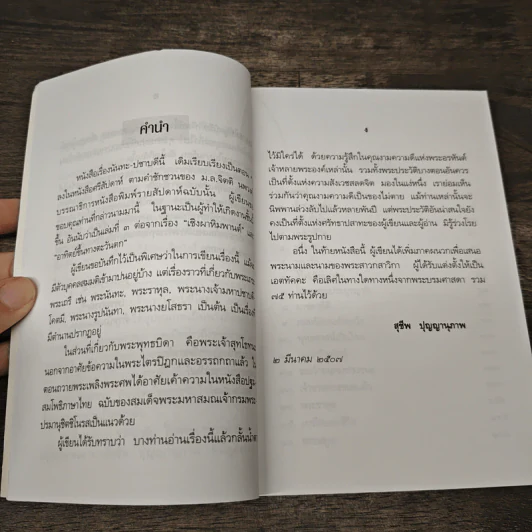 คำนำ
หนังสือเรื่องนันทะ-ปชาบดีนี้ เดิมเรียบเรียงเป็นตอน ๆ
ลงในหนังสือศรีสัปดาห์ ตามคำชักชวนของ ม.ล.จิตติ นพวงศ์
บรรณาธิการหนังสือพิมพ์รายสัปดาห์ฉบับนั้น ผู้เขียน
ขอบคุณท่านที่กล่าวนามมานี้ ในฐานะเป็นผู้ทำให้เกิดงานชิ้นนี้
ขึ้น อันนับว่าเป็นเล่มที่ ๓ ต่อจากเรื่อง "เชิงผาหิมพานต์" และ
"อาทิตย์ขึ้นทางตะวันตก"
ผู้เขียนขอบันทึกไว้เป็นพิเศษว่าในการเขียนเรื่องนี้ แม้จะ
มีตัวบุคคลสมมติเข้ามาปนอยู่บ้าง แต่เรื่องราวที่เกี่ยวกับพระเถระ
พระเถรี เช่น พระนันทะ, พระราหุล, พระนางเจ้ามหาปชาบดี
โคตมี, พระนางรูปนันทา, พระนางยโสธรา เป็นต้น เป็นเรื่องที่
มีตำนานปรากฏอยู่
ในส่วนที่เกี่ยวกับพระพุทธบิดา คือพระเจ้าสุทโธทนะ
นอกจากอาศัยข้อความในพระไตรปิฎกและอรรถกถาแล้ว ใน
ตอนถวายพระเพลิงพระศพได้อาศัยเค้าความในหนังสือปฐม
สมโพธิภาษาไทย ฉบับของสมเด็จพระมหาสมณเจ้ากรมพระ
ปรมานุชิตชิโนรสเป็นแนวด้วย
ผู้เขียนได้รับทราบว่า บางท่านอ่านเรื่องนี้แล้วกลั้นน้ำตา
ไว้มิใคร่ได้ ด้วยความรู้สึกในคุณงามความดีแห่งพระอรหันต์
เจ้าหลายพระองค์เหล่านั้น รวมทั้งพระประวัติบางตอนอันควร
เป็นที่ตั้งแห่งความสังเวชสลดจิต มองในแง่หนึ่ง เราย่อมเห็น
ร่วมกันว่าคุณงามความดีเป็นของไม่ตาย แม้ท่านเหล่านั้นจะ
นิพพานล่วงลับไปแล้วหลายพันปี แต่พระประวัติอันน่าสนใจยัง
คงเป็นที่ตั้งแห่งศรัทธาปสาทะของผู้เขียนและผู้อ่าน มิรู้ร่วงโรย
ไปตามพระรูปกาย
อนึ่ง ในท้ายหนังสือนี้ ผู้เขียนได้เพิ่มภาคผนวกเพื่อเสนอ
พระนามและนามของพระสาวกสาวิกา ผู้ได้รับแต่งตั้งให้เป็น
เอตทัคคะ คือเลิศในทางใดทางหนึ่งจากพระบรมศาสดา รวม
๗๕ ท่านไว้ด้วย
สุชีพ ปุญญานุภาพ
๒ มีนาคม ๒๕๐๗